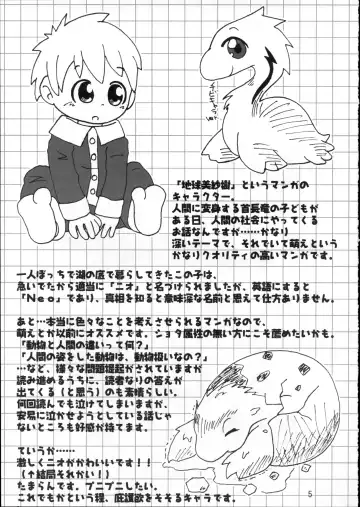 『地球美紗樹』というマンガの
キャラクター。
人間に変身する首長竜の子どもが
ある日、人間の社会にやってくる
お話なんですが……かなり
深いテーマで、それでいて萌えという
かなりクオリティの高いマンガです。
一人ぼっちで湖の底で暮らしてきたこの子は、
急いでたから適当に「ニオ」と名づけられましたが、英語にすると
「Neo」であり、真相を知ると意味深な名前と思えて仕方ありません。
あと…本当に色々なことを考えさせられるマンガなので、
萌えとか以前にオススメです。ショタ属性の無い方にこそ薦めたいかも。
「動物と人間の違いって何？」
「人間の姿をした動物は、動物扱いなの？」
……など、様々な問題提起がされていますが
読み進めるうちに、読者なりの答えが
出てくる（と思う）のも素晴らしい。
何回読んでも泣けてしまいますが、
安易に泣かせようとしている話じゃ
ないところも好感が持てます。
ていうか……
激しくニオがかわいいです！！
（↑結局それかい！）
たまらんです。プニプニしたい。
これでもかという程、庇護欲をそそるキャラです。
5